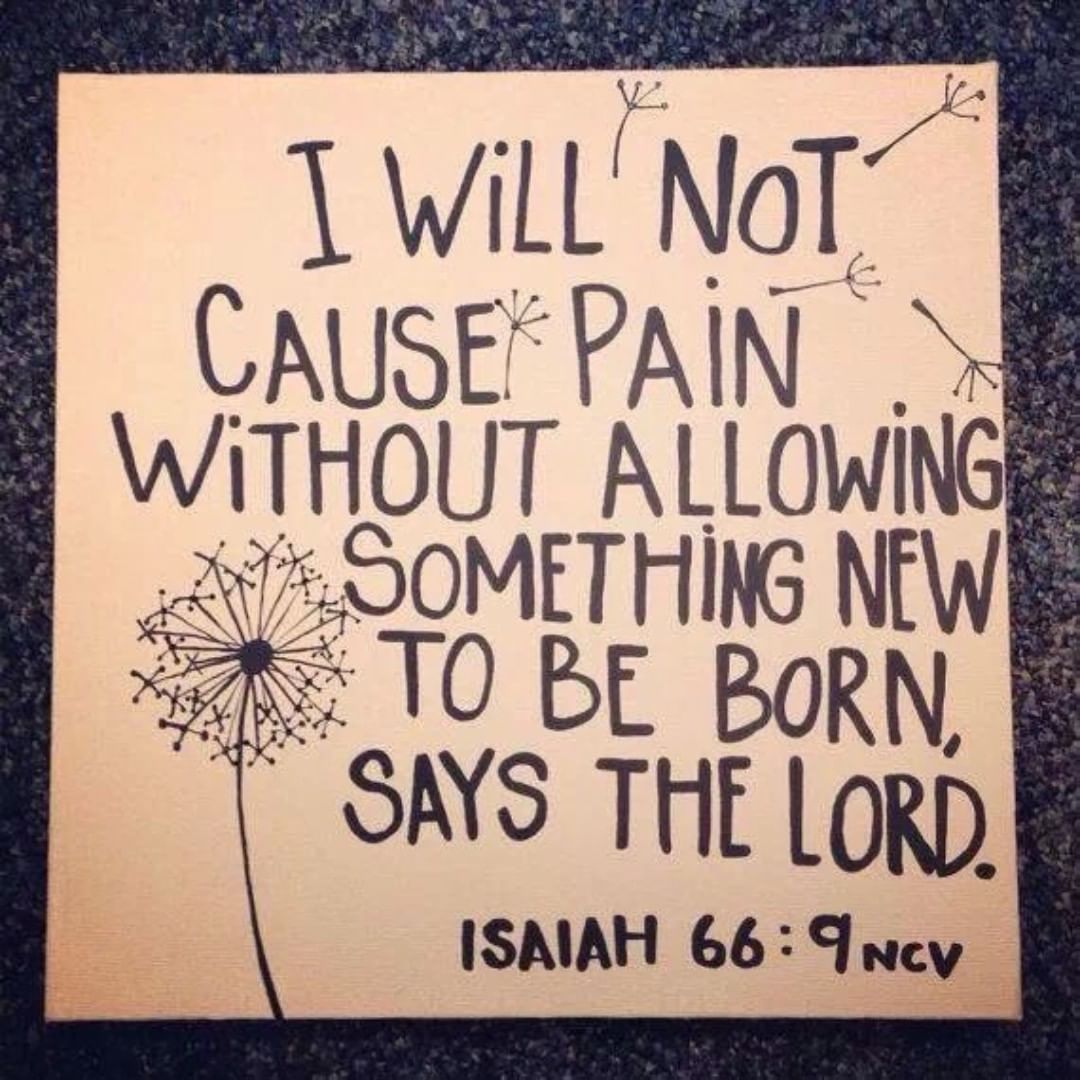 I WiLL NOT
CAUSE PAiN
WiTHOUT ALLOWiNG
SOMETHiNG NEW
TO BE BORN,
SAYS THE LORD.
ISAIAH 66:9 NCV